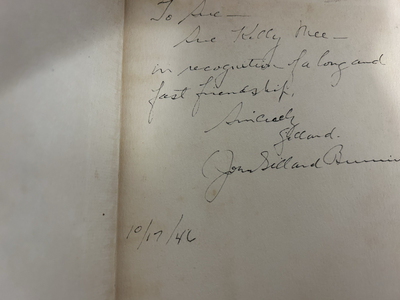 To Sue —
Sue Kelly Mee —
in recognition of a long and
fast friendship,
Sincerely
Gillard.
(John Gillard
10/17/46